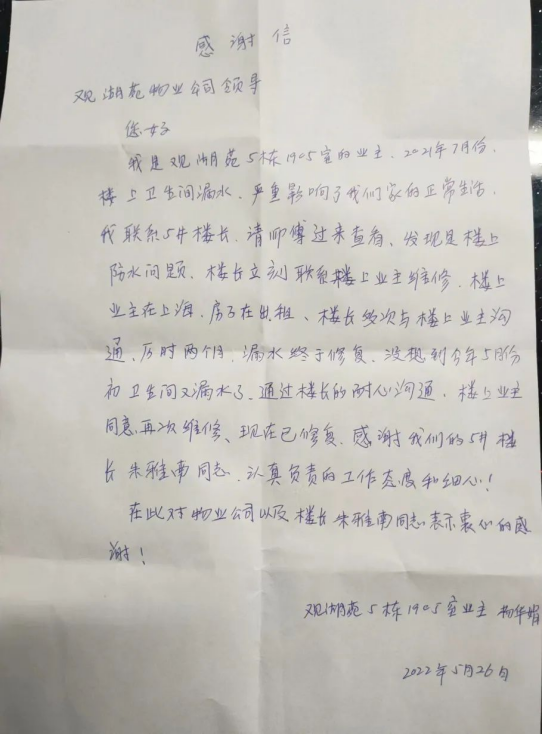 感谢信
观湖苑物业公司领导
您好
我是观湖苑5栋1905室的业主,2021年7月份,
楼上卫生间漏水,严重影响了我们家的正常生活,
我联系5#楼长,请师傅过来查看,发现是楼上
防水问题,楼长立刻联系楼上业主维修,楼上
业主在上海,房子在出租、楼长多次与楼上业主沟
通,历时两个月,漏水终于修复,没想到今年5月份
初卫生间又漏水了,通过楼长的耐心沟通,楼上业主
同意再次维修、现在已修复,感谢我们的5#楼
长朱雅南同志,认真负责的工作态度和细心!
在此对物业公司以及楼长朱雅南同志表示衷心的感
谢!
观湖苑5栋1905室业主 杨华娟
2022年5月26日